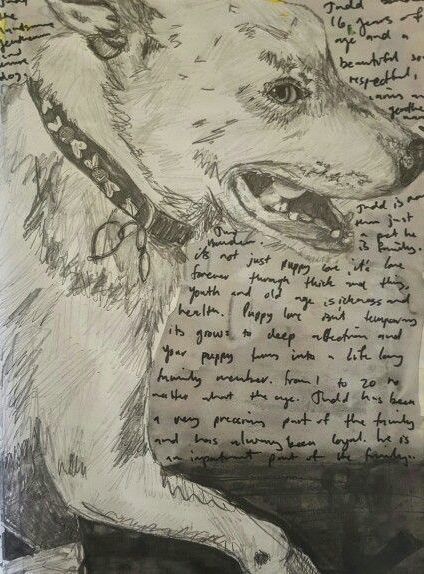 handsome
gentleman
in
dog.
Judd
16 years of
age and a
beautiful
respectful,
caring
gentle
Judd is
than just
a pet he
is family.
its not just puppy love it's love
forever through thick and thin,
youth and old age sickness and
health. Puppy love isn't temporary
its grows to deep affection and
your puppy turns into a life long
family member. from 1 to 20 no
matter what the age. Judd has been
a very precious part of the family
and has always been loyal. he is
an important part of the family..